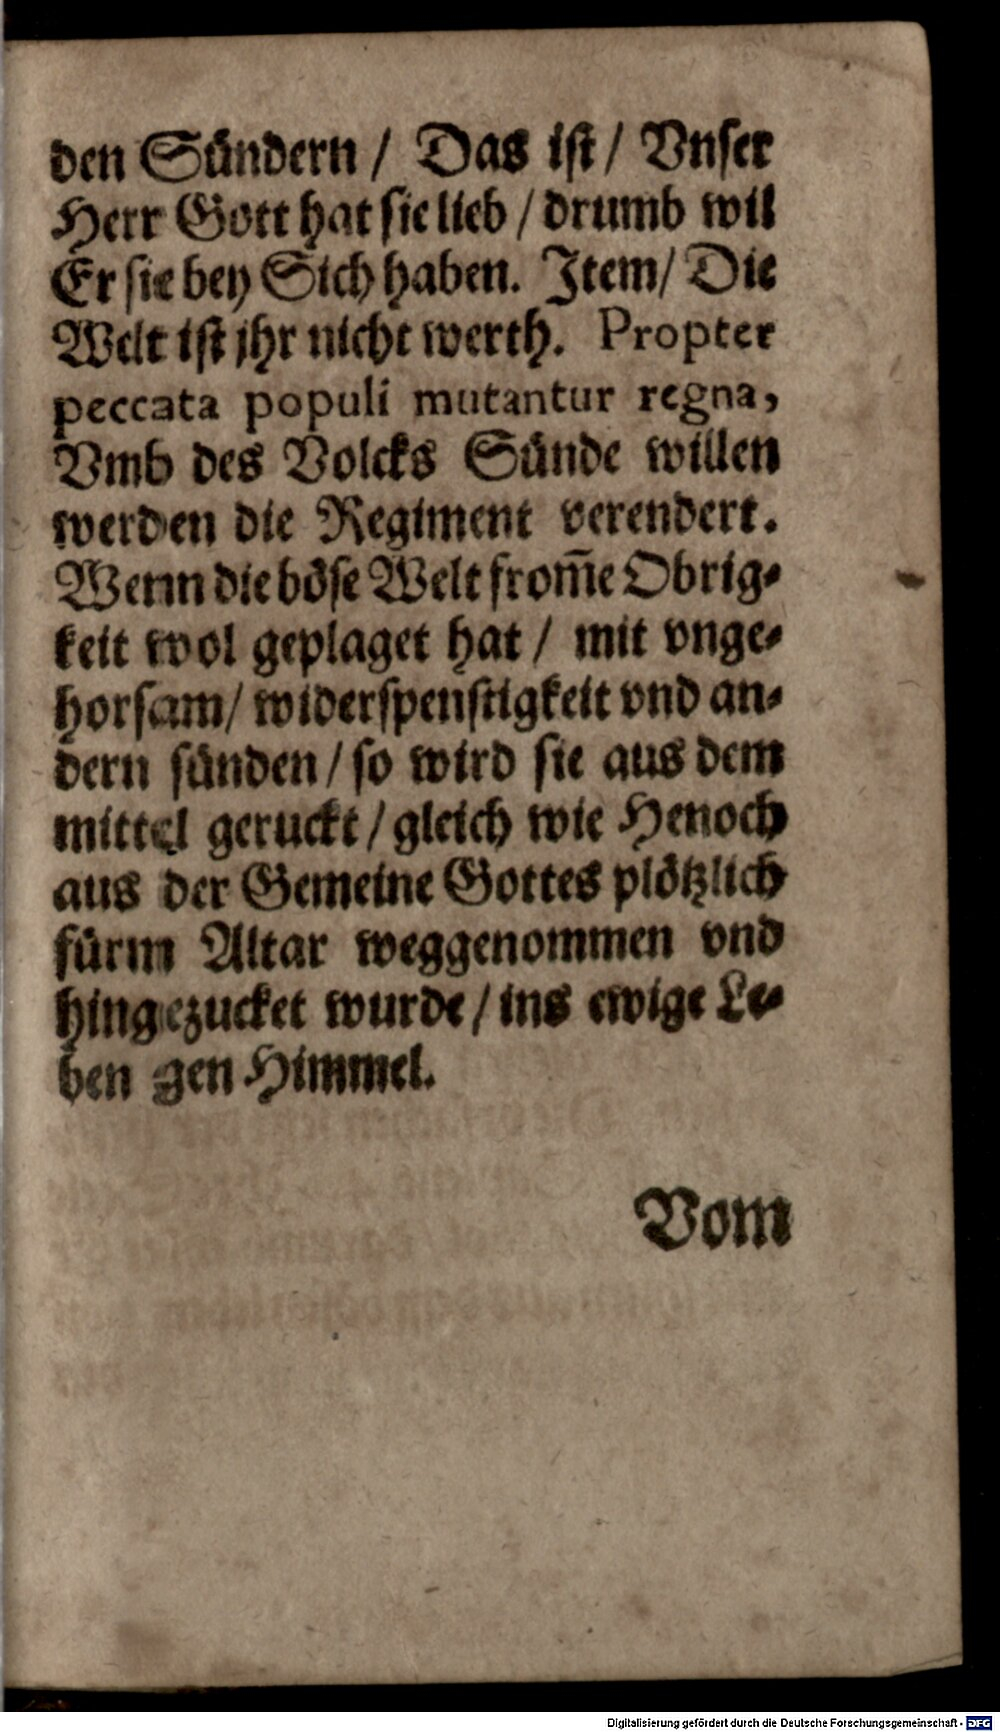 den Sündern / Das ist / Vnser
Herr Gott hat sie lieb / drumb wil
Er sie bey Sich haben. Item / Die
Welt ist jhr nicht werth. Propter
peccata populi mutantur regna,
Vmb des Volcks Sünde willen
werden die Regiment verendert.
Wenn die böse Welt from̃e Obrig-
keit wol geplaget hat / mit vnge-
horsam / widerspenstigkeit vnd an-
dern sünden / so wird sie aus dem
mittel geruckt / gleich wie Henoch
aus der Gemeine Gottes plötzlich
fürm Altar weggenommen vnd
hingezucket wurde / ins ewige Le-
ben gen Himmel.
Vom
Digitalisierung gefördert durch die Deutsche Forschungsgemeinschaft - DFG